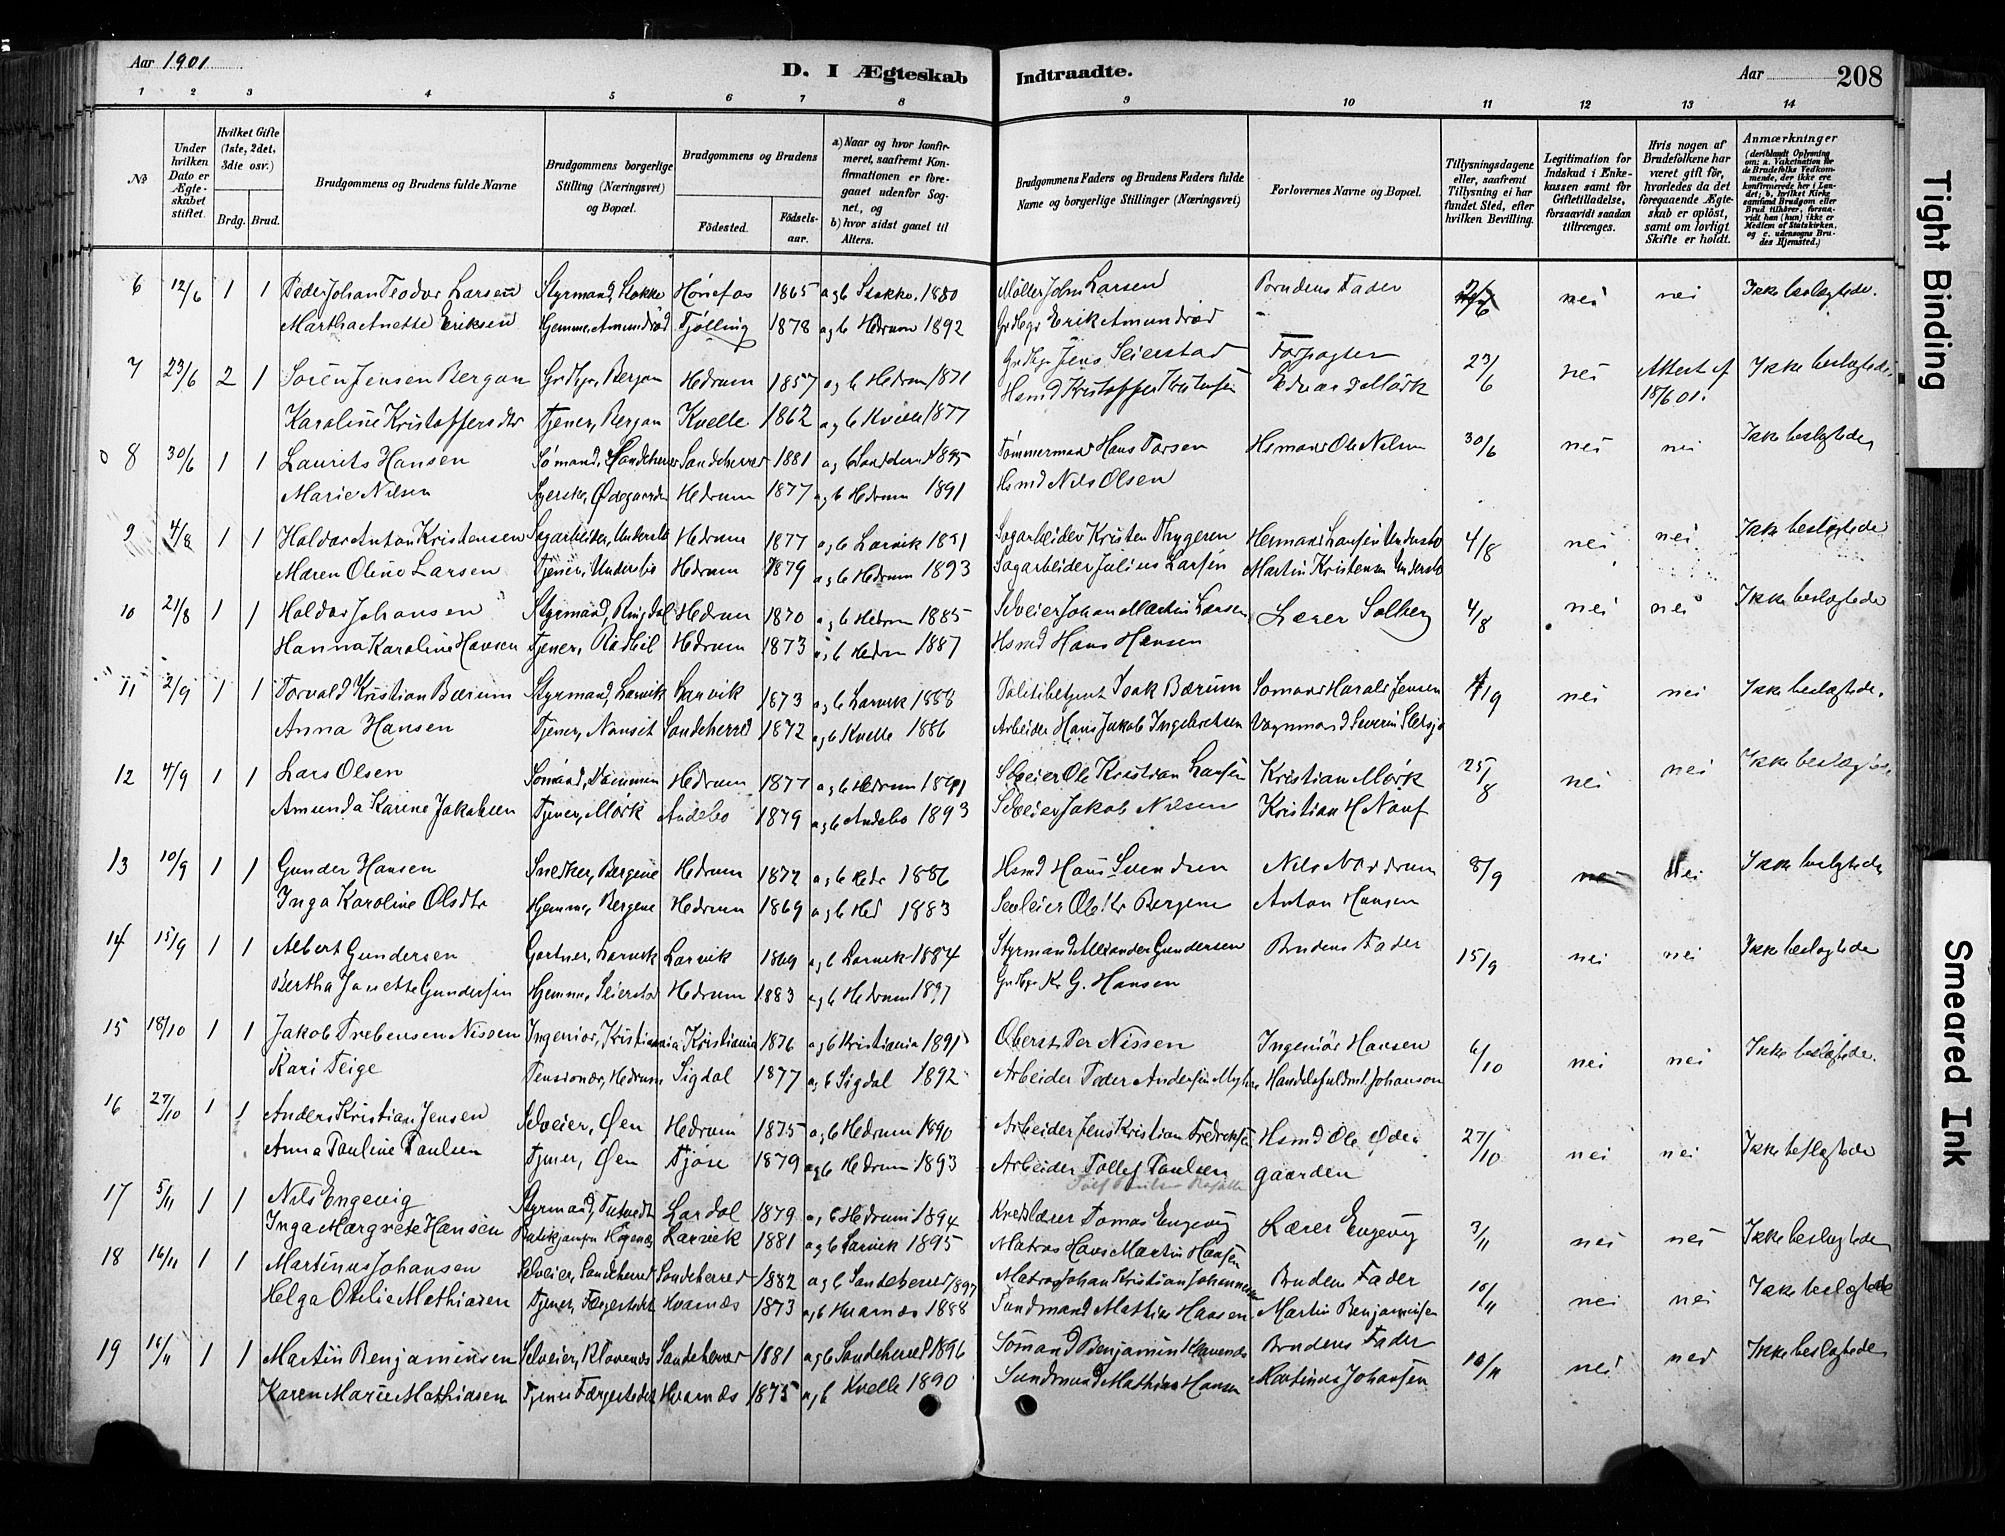 Aar 1901
D. I Ægteskab Indtraadte.
Aar 208
1 2 3 4 5 6 7 8 9 10 11 12 13 14
№
Under hvilken Dato er Ægteskabet stiftet.
Hvilket Gifte (1ste, 2det, 3die osv.)
Brdg. Brud.
Brudgommens og Brudens fulde Navne
Brudgommens borgerlige Stilling (Næringsvei) og Bopæl.
Brudgommens og Brudens
Fødested. Fødselsaar.
a) Naar og hvor konfirmeret, saafremt Konfirmationen er foregaaet udenfor Sognet, og b) hvor sidst gaaet til Alters.
Brudgommens Faders og Brudens Faders fulde Navne og borgerlige Stillinger (Næringsvei)
Forlovernes Navne og Bopæl.
Tillysningsdagene eller, saafremt Tillysning ei har fundet Sted, efter hvilken Bevilling.
Legitimation for Indskud i Enkekassen samt for Giftetilladelse, forsaavidt saadan tiltrænges.
Hvis nogen af Brudefolkene har været gift før, hvorledes da det foregaaende Ægteskab er opløst, samt om lovligt Skifte er holdt.
Anmærkninger (deriblandt Oplysning om: a. Vakcination for de Brudefolks Vedkommende, der ikke ere konfirmerede her i Landet; b. hvilket Kirkesamfund Brudgom eller Brud tilhører, forsaavidt han (hun) ikke er Medlem af Statskirken, og c. udensogns Brudes Hjemsted.)
6 12/6 1 1 Peder Johan Teodor Larsen Styrmand, Stokke Hønefos 1865 a og b Stokke 1880 Møller John Larsen Brudens Fader nei nei Ikke beslægtede.
Martha Anette Eriksen Hjemme, Amundrød Tjølling 1878 a og b Hedrum 1892 Grdbgr Erik Amundrød
7 23/6 2 1 Søren Jensen Bergan Grdbgr, Bergan Hedrum 1857 a og b Hedrum 1871 Grdbgr Jens Seierstad Forpagter 23/6 nei Attest af 18/6 01. Ikke beslægtede.
Karoline Kristoffersdtr Tjener, Bergan Kvelle 1862 a og b Kvelle 1877 Hsmd Kristoffer Edvard Mørk
8 30/6 1 1 Laurits Hansen Sømand, Sandeherred Sandeherred 1881 a og b Sandeherred 1895 Tømmermand Hans Hsmand Ole Nilsen 30/6 nei nei Ikke beslægtede
Marie Nilsen Syerske, Ødegaarden Hedrum 1877 a og b Hedrum 1891 Hsmd Nils Olsen
9 4/8 1 1 Haldor Anton Kristensen Sagarbeider, Undersbo Hedrum 1877 a og b Larvik 1891 Sagarbeider Kristen Thygesen Herman Larsen Undersbo 4/8 nei nei Ikke beslægtede
Maren Oline Larsen Tjener, Undersbo Hedrum 1879 a og b Hedrum 1893 Sagarbeider Julius Larsen Martin Kristensen Undersbo
10 21/8 1 1 Haldor Johansen Styrmand, Ringdal Hedrum 1870 a og b Hedrum 1885 Selveier Johan Martin Larsen Lærer Solberg 4/8 nei nei Ikke beslægtede
Hanna Karoline Hansen Tjener, Hedrum 1873 a og b Hedrum 1887 Hsmd Hans Hansen
11 2/9 1 1 Torvald Kristian Bærum Styrmand, Larvik Larvik 1873 a og b Larvik 1888 Politibetjent Isak Bærum Sømand Harald Jensen 1/9 nei nei Ikke beslægtede.
Anna Hansen Tjener, Nanset Sandeherred 1872 a og b Kvelle 1886 Arbeider Hans Jakob Ingebretsen Vognmand Severin
12 4/9 1 1 Lars Olsen Sømand, Dammen Hedrum 1877 a og b Hedrum 1891 Selveier Ole Kristian Larsen Kristian Mørk 25/8 nei nei Ikke beslægtede.
Amunda Karine Jakobsen Tjener, Mørk Andebo 1879 a og b Andebo 1893 Selveier Jakob Nilsen Kristian H. Nauf
13 10/9 1 1 Gunder Hansen Snedker, Bergene Hedrum 1872 a og b Hedr 1886 Hsmd Hans Svendsen Nils Nordrum 8/9 nei Nei Ikke beslægtede
Inga Karoline Olsdtr Hjemme, Bergene Hedrum 1869 a og b Hed 1883 Selveier Ole Bergene Anton Hansen
14 15/9 1 1 Albert Gundersen Gartner, Larvik Larvik 1869 a og b Larvik 1884 Styrmand Alexander Gundersen Brudens Fader 15/9 nei nei Ikke beslægtede
Bertha Janette Gundersen Hjemme, Seierstad Hedrum 1883 a og b Hedrum 1897 Grdbgr K. G. Hansen
15 18/10 1 1 Jakob Trebensen Nissen Ingeniør, Kristiania Kristiania 1876 a og b Kristiania 1891 Oberst Per Nissen Ingeniør Hansen 6/10 nei nei Ikke beslægtede.
Kari Teige Pensionær, Hedrum Sigdal 1877 a og b Sigdal 1892 Arbeider Peder Andersen Handelsfuldm. Johanson
16 27/10 1 1 Anders Kristian Jensen Selveier, Øen Hedrum 1875 a og b Hedrum 1890 Arbeider Jens Kristian Fredriksen Hsmd Ole Øde- 27/10 nei nei Ikke beslægtede
Anna Pauline Paulsen Tjener, Øen Tjøse 1879 a og b Hedrum 1893 Arbeider Tollef Paulsen gaarden
17 5/11 1 1 Nils Engevig Styrmand, Tutvedt Lardal 1879 a og b Hedrum 1894 Kredslærer Tomas Engevig Lærer Engevig 3/11 nei nei Ikke beslægtede
Inga Margrete Hansen Larvik 1881 a og b Larvik 1895 Matros Hans Martin Hansen
18 16/11 1 1 Martinus Johansen Selveier, Sandeherred Sandeherred 1882 a og b Sandeherred 1897 Matros Johan Kristian Johannesen Brudens Fader 10/11 nei nei Ikke beslægtede
Helga Otelie Mathiasen Tjener, Færgestedet Hvarnæs 1873 a og b Hvarnæs 1888 Sundmand Mathias Hansen Martin Benjaminsen
19 16/11 1 1 Martin Benjaminsen Selveier, Klavenæs Sandeherred 1881 a og b Sandeherred 1896 Sømand Benjamin Klavenæs Brudens Fader 10/11 nei nei Ikke beslægtede
Karen Marie Mathiasen Tjener, Færgestedet Hvarnæs 1875 a og b Kvelle 1890 Sundmand Mathias Hansen Martinus Johansen
Tight Binding
Smeared Ink